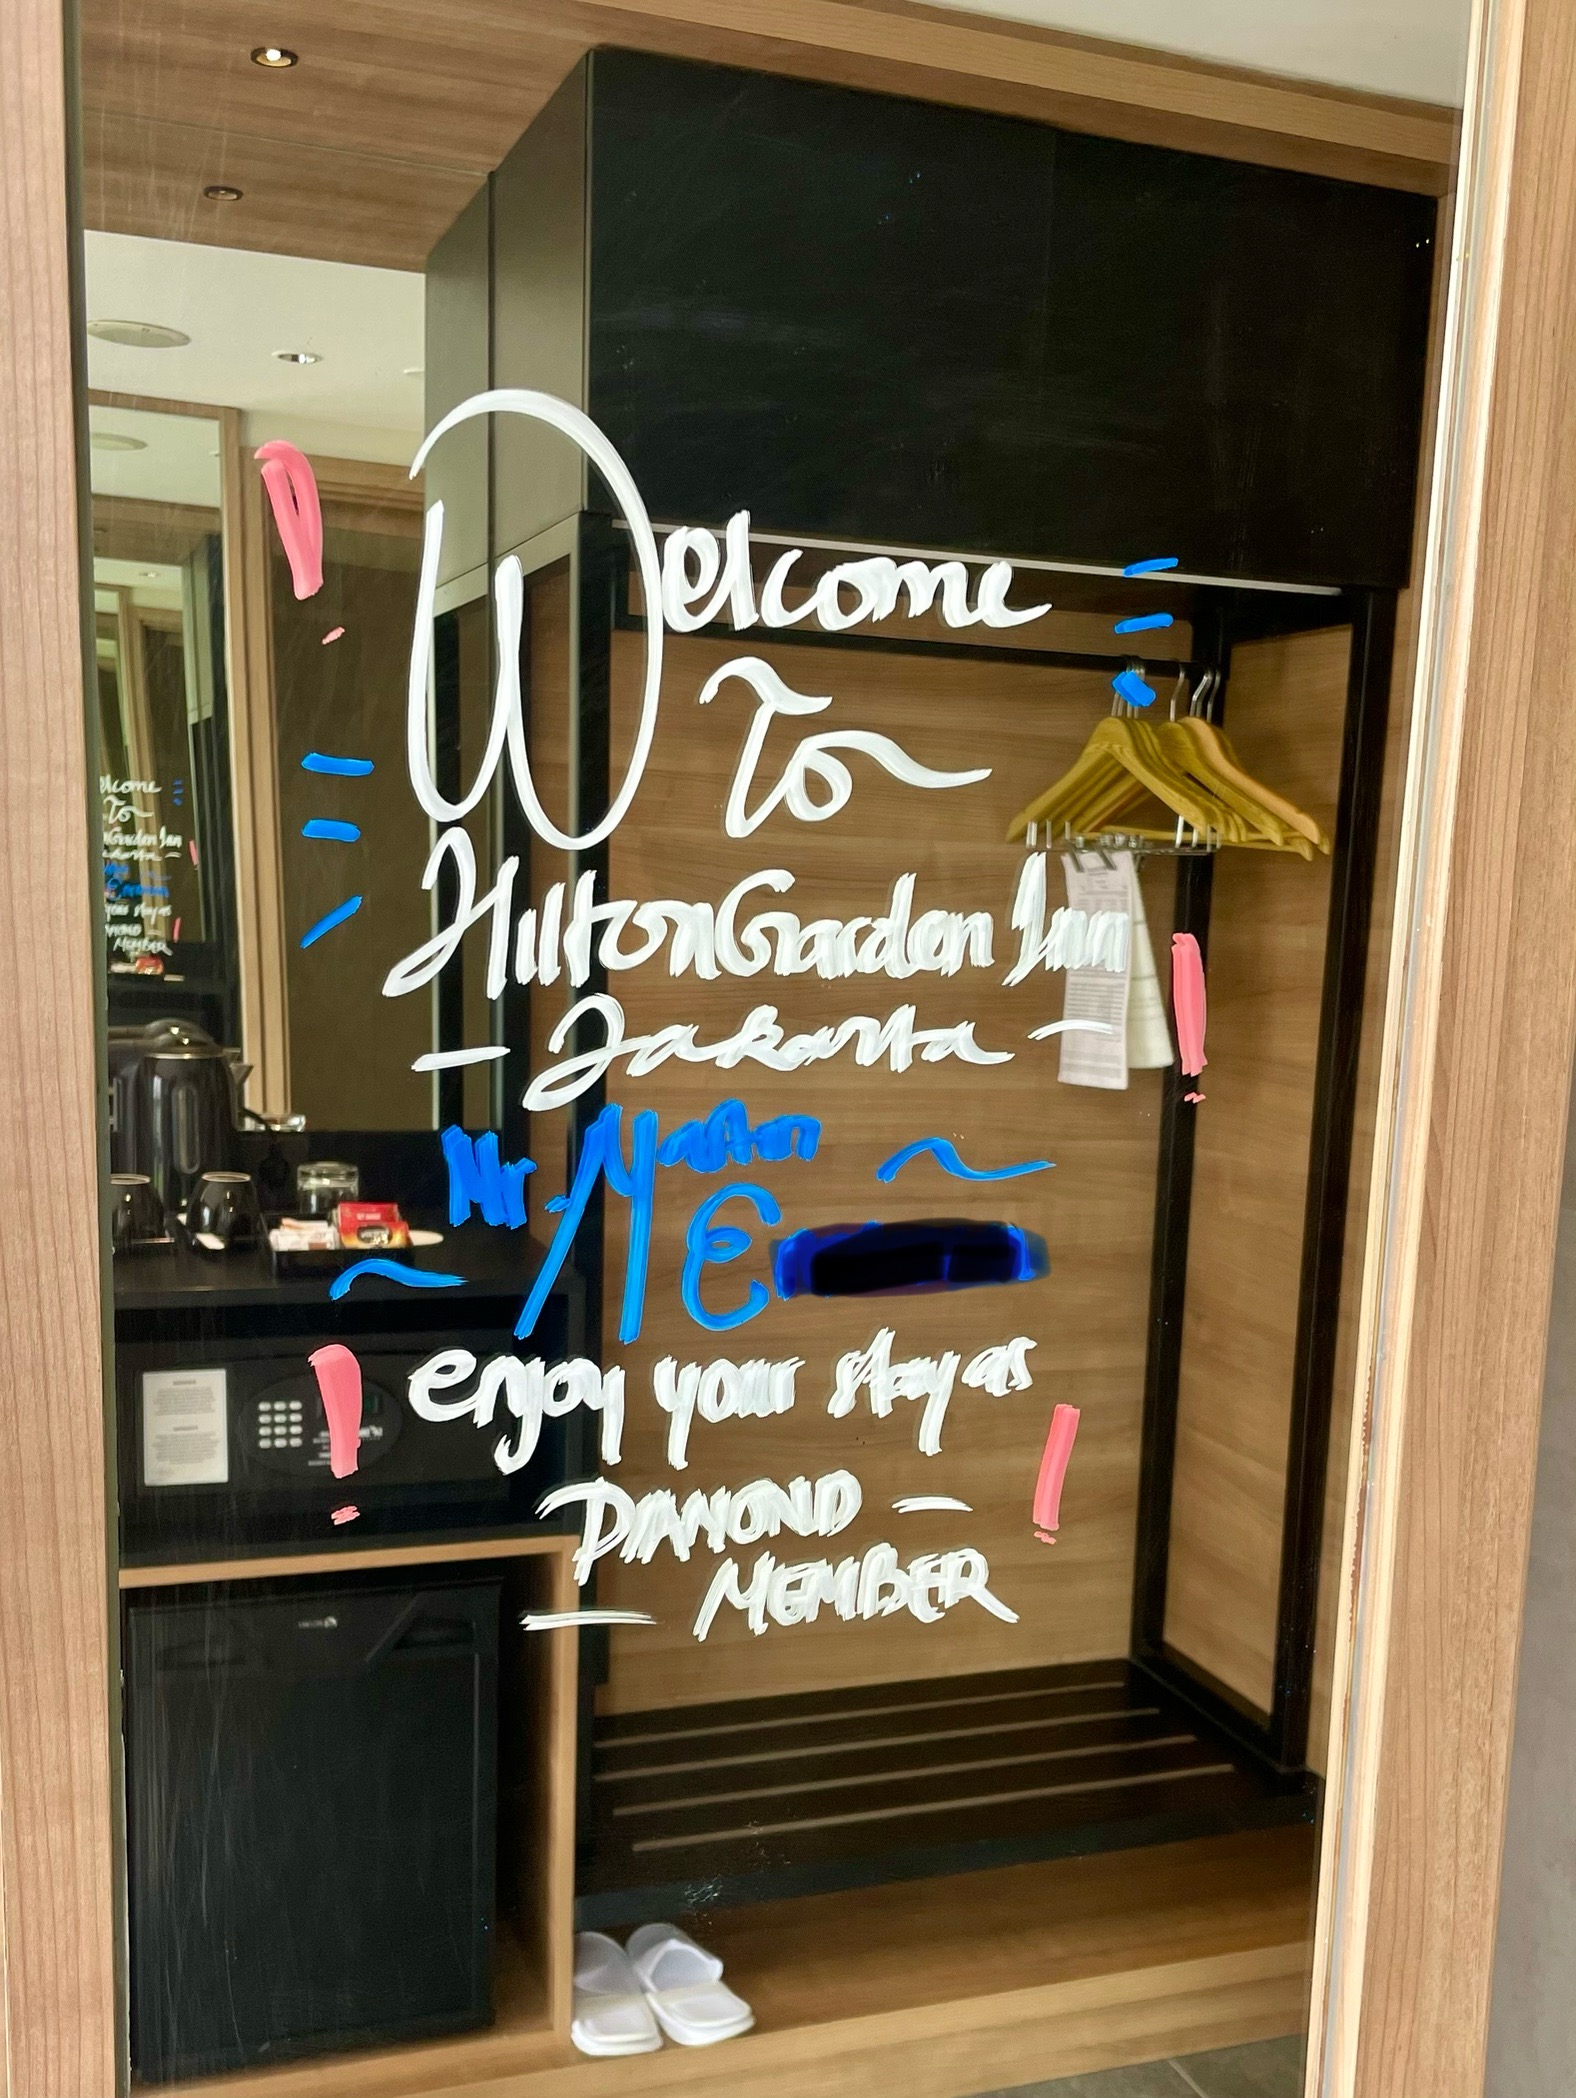 Welcome
To
Hilton Garden Inn
- Jakarta -
Mr. Martin ~
~ E
enjoy your stay as
DIAMOND -
- MEMBER